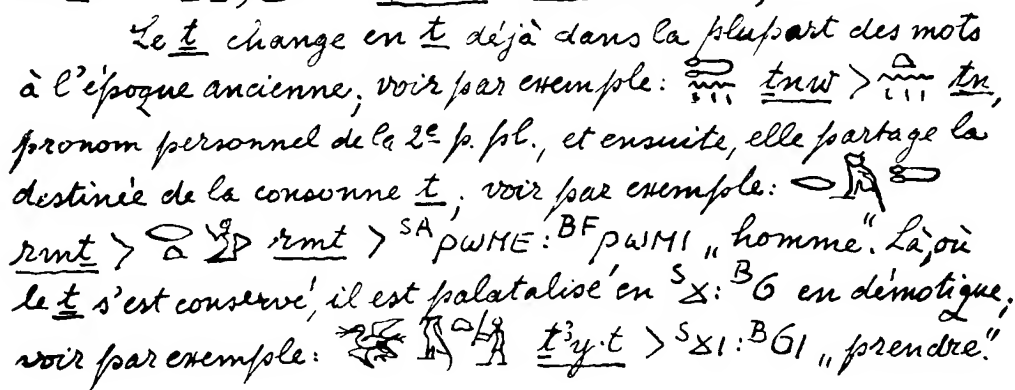 Le ṯ change en t déjà dans la plupart des mots
à l'époque ancienne; voir par exemple: ṯnw > tn,
pronom personnel de la 2ᵉ p. pl., et ensuite, elle partage la
destinée de la consonne t; voir par exemple:
rmṯ > rmt > ˢᴬⲣⲱⲙⲉ : ᴮꟳⲣⲱⲙⲓ „homme". Là, où
le ṯ s'est conservé, il est palatalisé en ˢϫ : ᴮϭ en démotique;
voir par exemple: ṯ³y·t > ˢϫⲓ : ᴮϭⲓ „prendre".